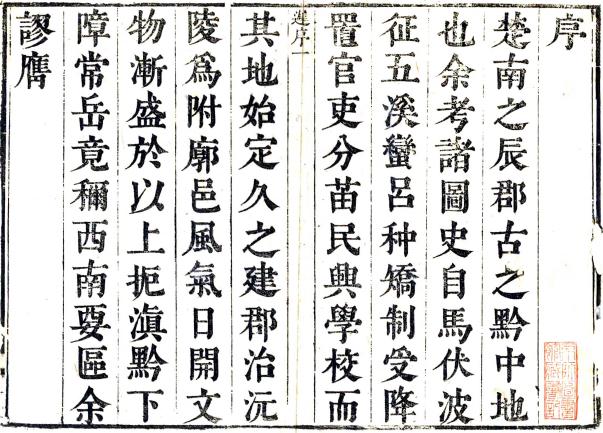 序
楚南之辰郡古之黔中地
也余考諸圖史自馬伏波
征五溪蠻呂种矯制受降
置官吏分苗民興學校而
序一
其地始定久之建郡治沅
陵爲附廓邑風氣日開文
物漸盛於以上扼滇黔下
障常岳竟稱西南要區余
謬膺